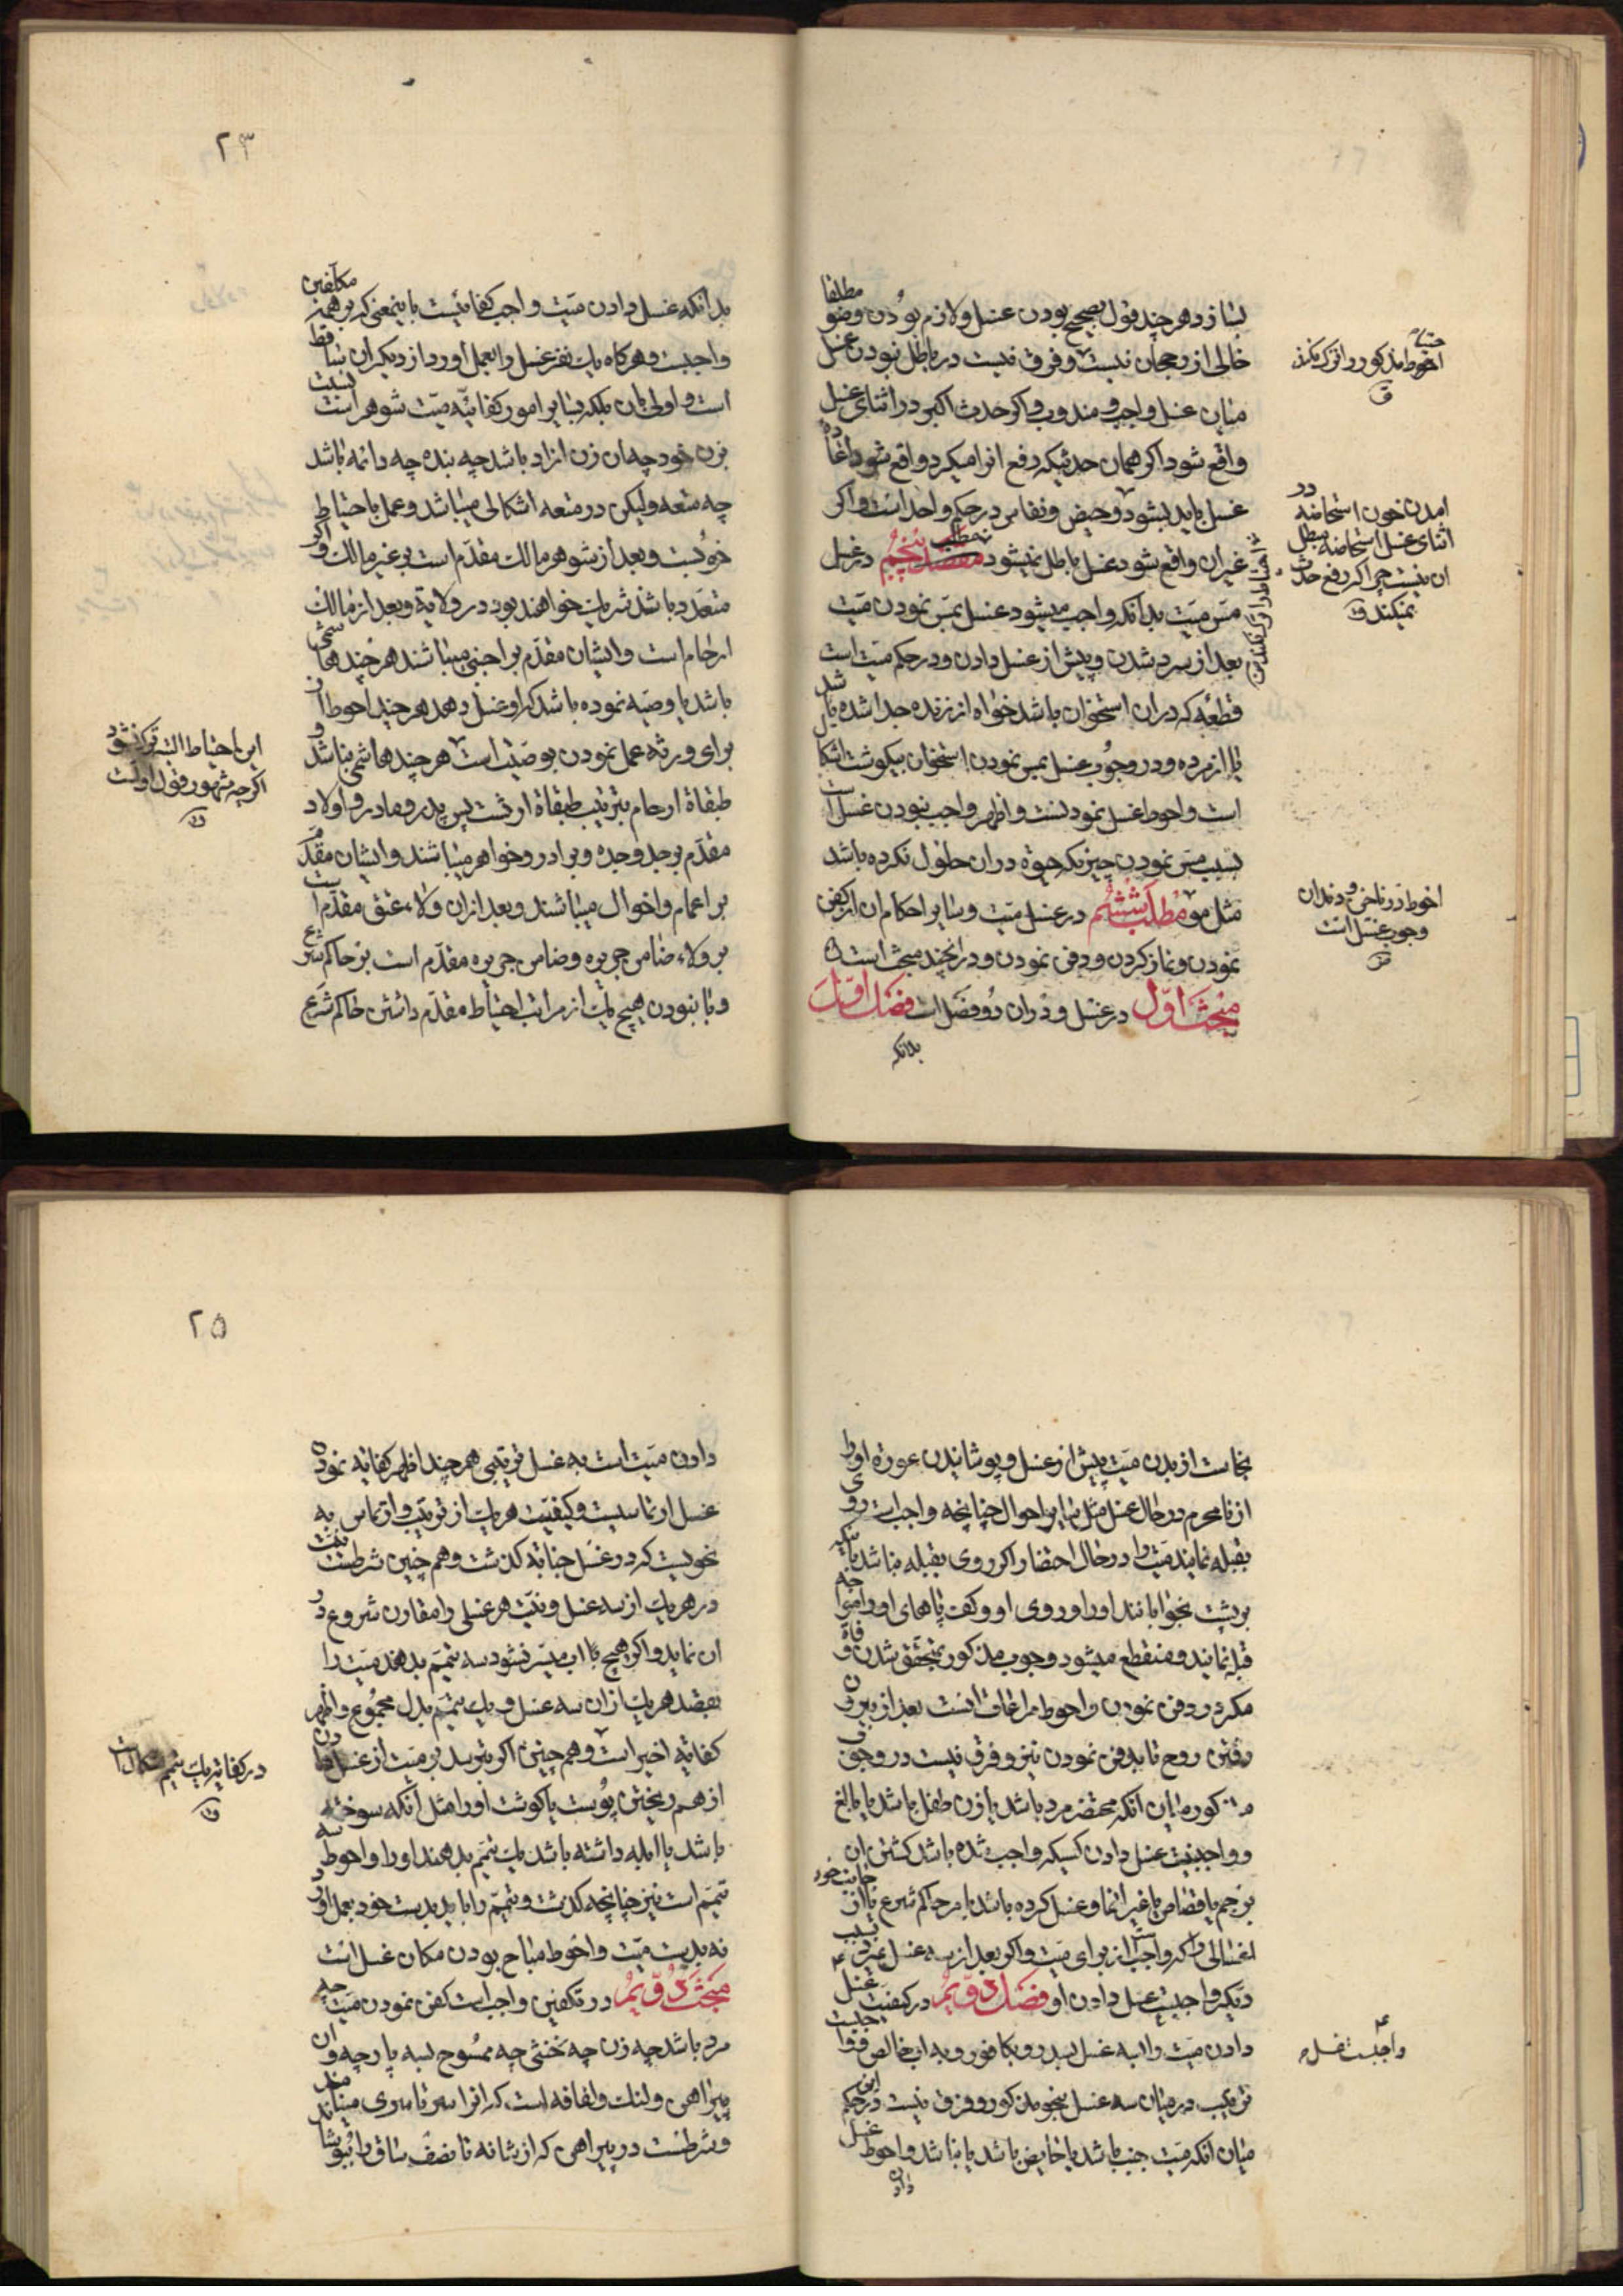 بسازد هر چند قول بصحیح بودن غسل و لازم بودن وضو مطلقا
خالی از رجحان نیست و فرق نیست در باطل نبودن غسل
میان غسل واجب و مندوب و اکر حدث اکبر در اثنای غسل
واقع شود اکر همان حدثیکه رفع انرا میکرد واقع شود اعاده
غسل باید بشود و حیض و نفاس در حکم واحد است و اکر
غیر ان واقع شود غسل باطل نمیشود مطلب پنجم در غسل
مس میت بدانکه واجب میشود غسل بمس نمودن میت
بعد از سرد شدن و پیش از غسل دادن و در حکم میت است
قطعهٔ که در ان استخوان باشد خواه از زنده جدا شده باشد
یا از مرده و در وجوب غسل بمس نمودن استخوان بیکوشت اشکال
است و احوط غسل نمودنست و اظهر واجب نبودن غسل است
بسبب مس نمودن چیزیکه حیوة در ان حلول نکرده باشد
مثل مو مطلب ششم در غسل میت و سایر احکام ان از کفن
نمودن و نماز کردن و دفن نمودن و در ان چند مبحث است
مبحث اول در غسل و در ان دو فصل است فصل اول
بدانکه
احوط مذکور را ترک نکند
امدن خون استحاضه در
اثنای غسل استحاضه مبطل
ان نیست چرا که رفع حدث
نمیکند
احوط در ناخن و دندان
وجوب غسل است
۲۳
بدانکه غسل دادن میت واجب کفائیست باینمعنی که بر همه مکلفین
واجبست و هر کاه یک نفر غسل را بعمل اورد از دیکران ساقط
است و اولی بان بلکه بسایر امور کفائیه میت شوهر است نسبت
بزن خود چه ان زن ازاد باشد چه بنده چه دائمه باشد
چه متعه ولیکن در متعه اشکالی میباشد و عمل باحتیاط
خوبست و بعد از شوهر مالک مقدم است بر غیر مالک و اکر
متعدد باشند شریک خواهند بود در ولایة و بعد از مالک
ارحام است و ایشان مقدم بر اجنبی میباشند هر چند هاشمی
باشد یا وصیه نموده باشد که او غسل دهد هر چند احوط از
برای ورثه عمل نمودن بوصیت است هر چند هاشمی نباشد و
طبقاة ارحام بترتیب طبقاة ارثست پس پدر و مادر و اولاد
مقدم بر جد و جده و برادر و خواهر میباشند و ایشان مقدم
بر اعمام و اخوال میباشند و بعد از ان ولاء عتق مقدم است
بر ولاء ضامن جریره و ضامن جریره مقدم است بر حاکم شرع
و با نبودن هیچ یک از مراتب احتیاط مقدم داشتن حاکم شرع
این احتیاط البته ترک نشود
اکر چه مشهور قول اولست
نجاست از بدن میت پیش از غسل و پوشانیدن عورة او را
از نامحرم در حال غسل مثل سایر احوال چنانچه واجب است روی
بقبله نمایند میت را در حال احتضار اکر روی بقبله نباشد باینکه
بر پشت بخوابانند او را و روی او و کف پاهای او را مواجه
قبله نمایند و منقطع میشود وجوب مذکور بمتحقق شدن وفاة
مکر در دفن نمودن و احوط مراعاة انست بعد از بیرون
رفتن روح تا بدفن نمودن نیز و فرق نیست در وجوب
مذکور میان انکه محتضر مرد باشد یا زن طفل باشد یا بالغ
و واجب نیست غسل دادن کسیکه واجب شده باشد کشتن ان
برجم یا قصاص یا غیر انها و غسل کرده باشد بامر حاکم شرع یا از جانب خود
اغسالی را که واجب است از برای میت و اکر بعد از سه غسل بمیرد بسبب
دیکر واجبست غسل دادن او فصل دویم در کیفیت غسل
دادن میت واجبست سه غسل بسدر و بکافور و به اب خالص
ترتیب در میان سه غسل بنحو مذکور و فرق نیست در این حکم
میان انکه میت جنب باشد یا حایض باشد یا نباشد و احوط غسل
دادن
۲۵
دادن میت است به غسل ترتیبی هر چند اظهر کفایة نمودن
غسل ارتماسیست و کیفیت هر یک از ترتیب و ارتماس به
نحویست که در غسل جنابة کذشت و هم چنین شرطست نیت
در هر یک از سه غسل و نیت هر غسلی را مقارن شروع در
ان نماید و اکر هیچ اب میسر نشود سه تیمم بدهند میت را
بقصد هر یک از ان سه غسل و یک تیمم بدل مجموع و اظهر
کفایة اخیر است و هم چنین اکر بترسد بر میت از غسل دادن
از هم ریختن پوست یا کوشت او را مثل انکه سوخته
باشد یا ابله داشته باشد یک تیمم بدهند او را و احوط سه
تیمم است نیز چنانچه کذشت و تیمم را باید بدست خود بعمل اورد
نه بدست میت و احوط مباح بودن مکان غسل است
مبحث دویم در تکفین واجب است کفن نمودن میت چه
مرد باشد چه زن چه خنثی چه ممسوح بسه پارچه و ان
پیراهن و لنک و لفافه است که انرا سرتاسری مینامند
و شرطست در پیراهن که از شانه تا نصف ساق را بپوشاند
در کفایة یک تیمم اشکال است